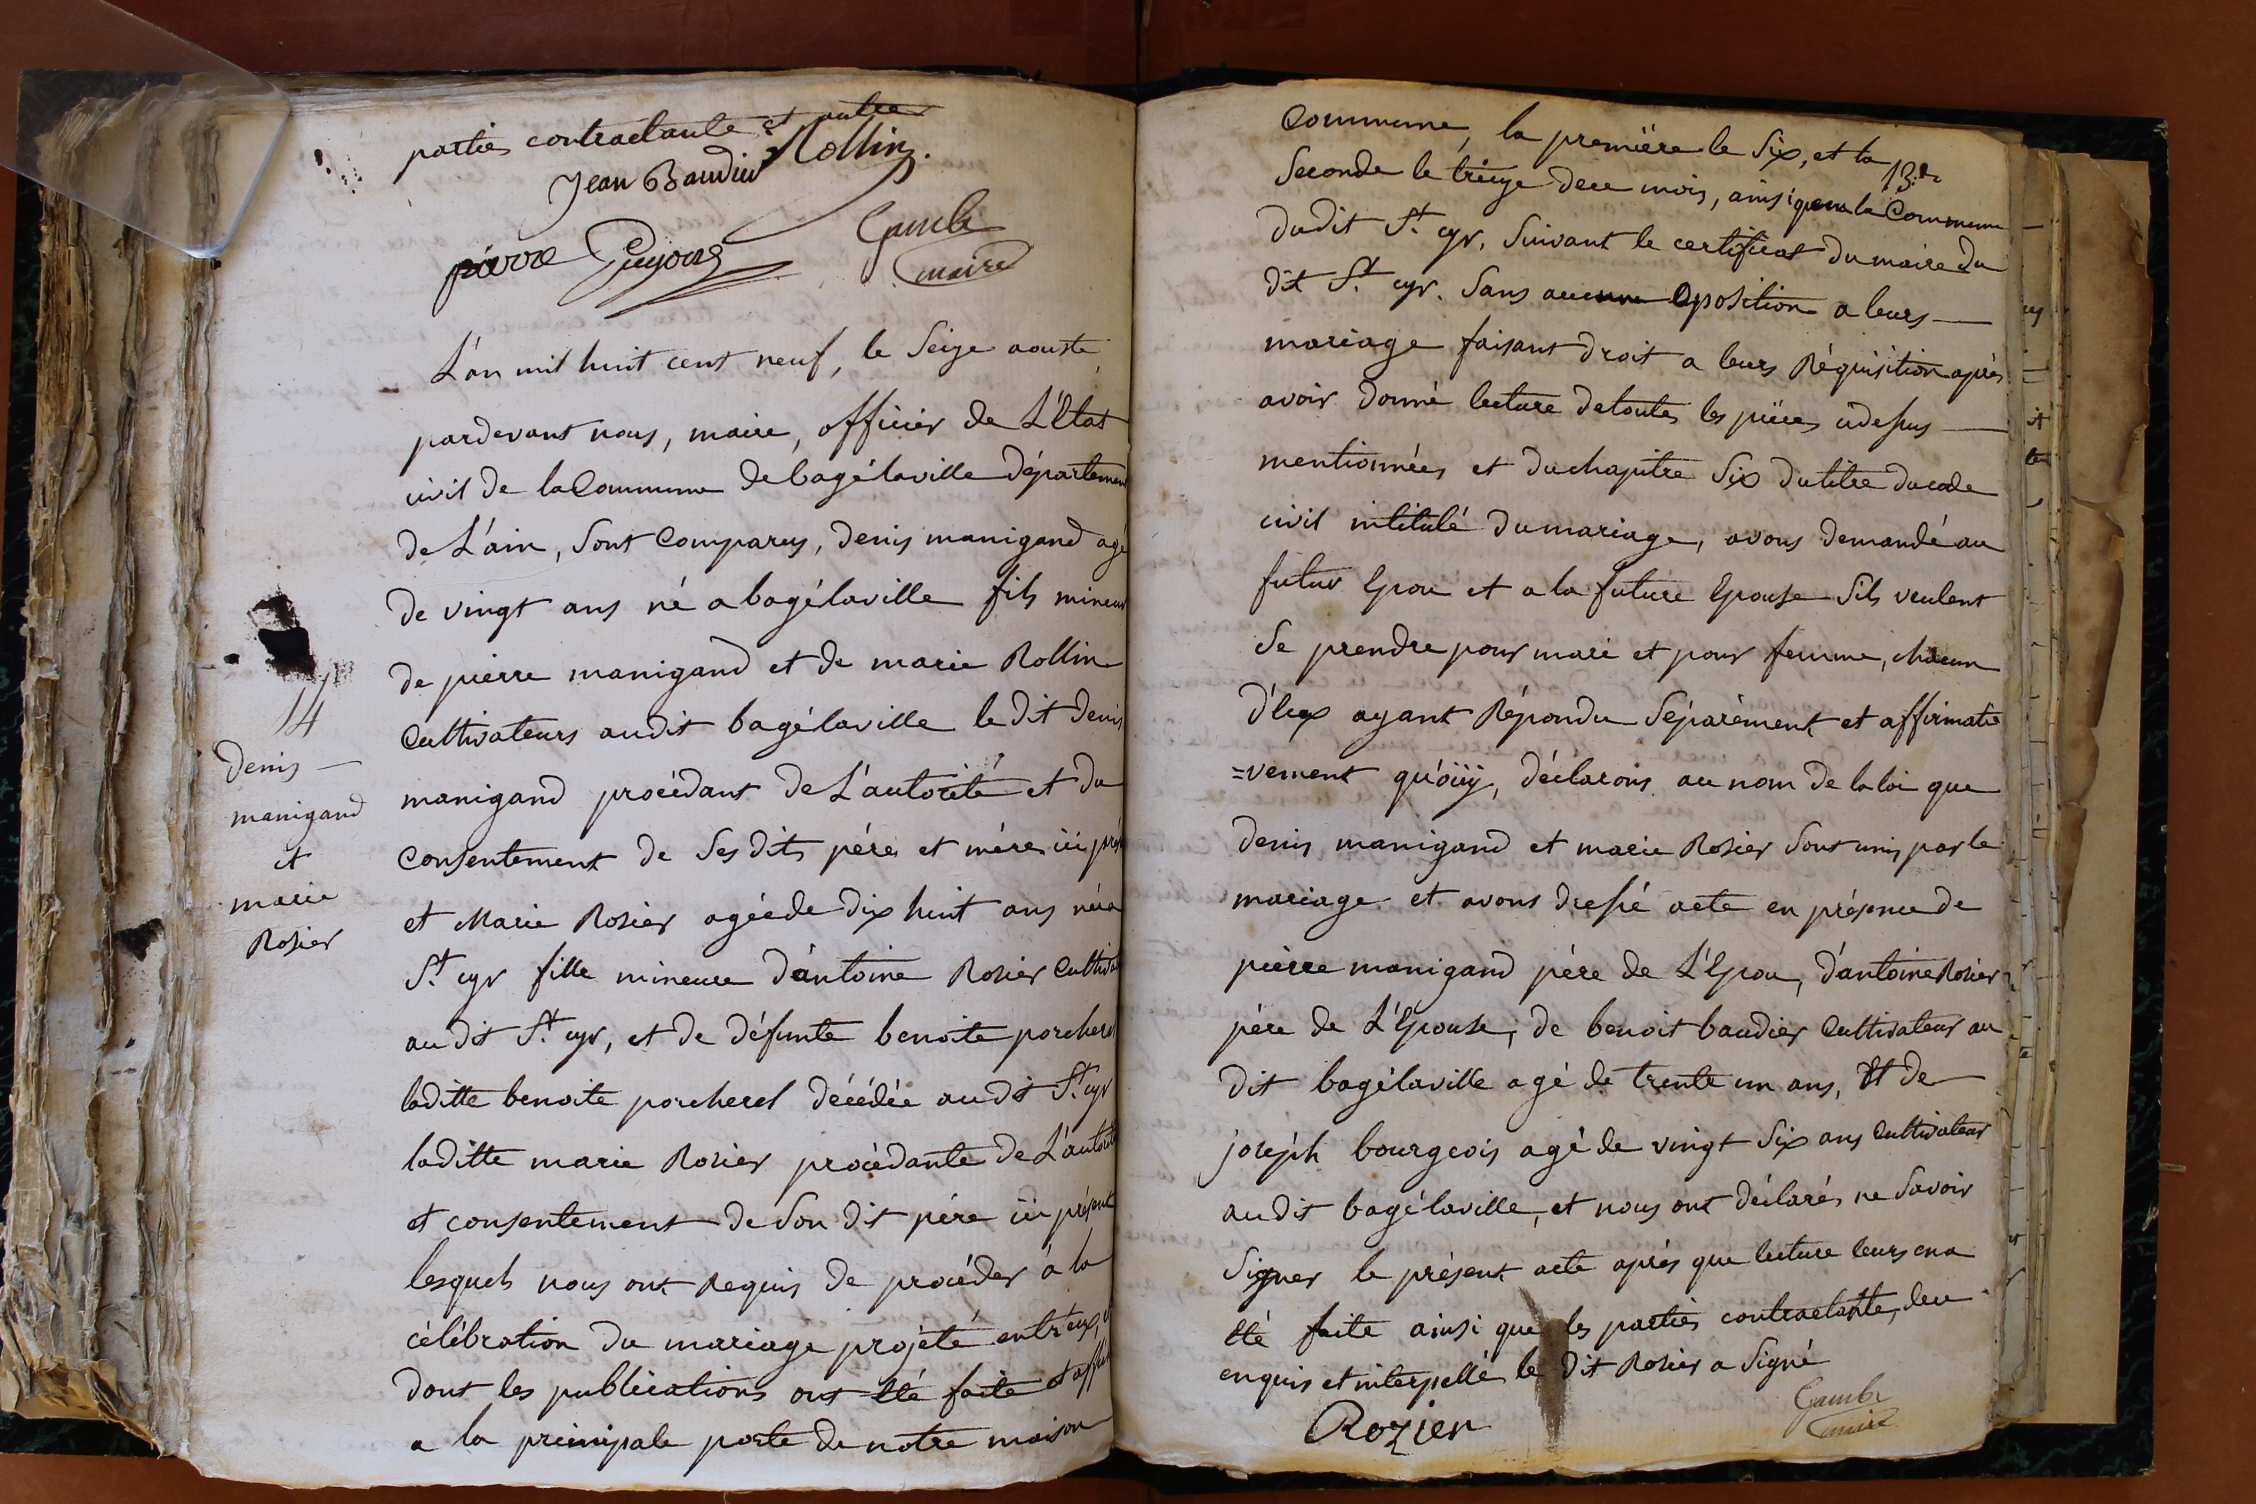 parties contractante et autres
Jean Baudier Rollin
pierre Guyon
Gambe
maire
L'an mil huit cent neuf, le Seize aouste
pardevant nous, maire, officier de L'Etat
civil de la Commune de bagélaville Département
de L'ain, Sont Comparus, denis manigand agé
de vingt ans né a bagélaville fils mineur
de pierre manigand et de marie Rollin
Cultivateurs audit bagélaville le dit denis
manigand procédant de L'autorité et du
Consentement de Ses dits pére et mére ici prés
et Marie Rosier agée de dix huit ans née a
St. cyr fille mineure d'antoine Rosier Cultiva
au dit St. cyr, et de défunte benoite porcherel
laditte benoite porcherel décédée au dit St. cyr
laditte marie Rosier procédante de L'autorité
et consentement de Son dit pére ici présent
lesquels nous ont Requis de procéder á la
célébration du mariage projeté entr'eux, et
dont les publications ont Eté faite et affi
a la principale porte de notre maison
14
denis
manigand
et
marie
Rosier
Commune, la premiere le Six, et la
13.e
Seconde le treize dece mois, ainsi quen la Commune
dudit St. cyr, Suivant le certificat du maire du
dit St. cyr. Sans aucune Oposition a leurs
mariage faisant droit a leurs Réquisition après
avoir donné lecture de toutes les piéces cidessus
mentionnées et du chapitre Six du titre du code
civil intitulé du mariage, avons demandé au
futur Epou et a la future Epouse S'ils veulent
Se prendre pour mari et pour femme, chacun
d'Eux ayant Répondu Séparément et affirmati
=vement qu'oüy, déclarons au nom de la loi que
denis manigand et marie Rosier Sont unis par le
mariage et avons dressé acte en présence de
pierre manigand pére de L'Epou, d'antoine Rosier
pére de L'Epouse, de benoit baudier Cultivateur au
dit bagélaville agé de trente un ans, Et de
joseph bourgeois agé de vingt Six ans Cultivateur
audit bagélaville, et nous ont déclarés ne Savoir
Signer le présent acte aprés que lecture leurs en a
Eté faite ainsi que les parties contractante, dece
enquis et interpellé le dit Rosier a Signé
Rozier
Gambe
maire